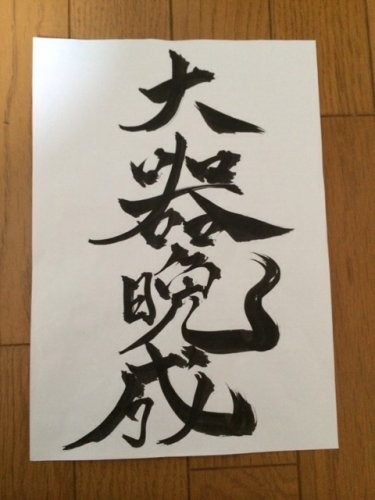 大器晩成